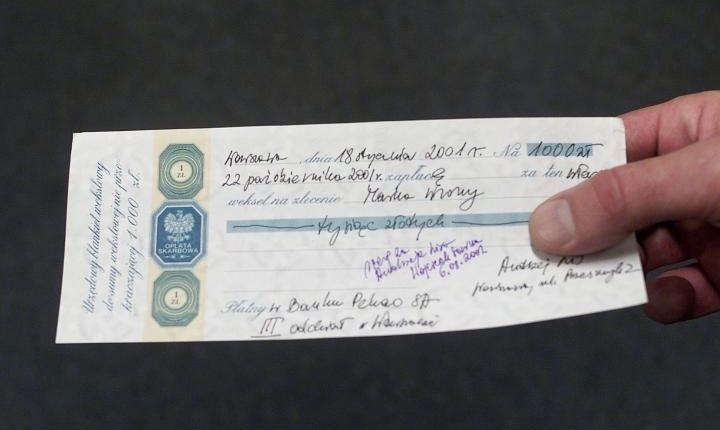 Urzędowy blankiet wekslowy
do sumy wekslowej nie prze-
kraczającej 1.000 zł.
1
ZŁ
OPŁATA
SKARBOWA
1
ZŁ
Warszawa, dnia 18 stycznia 2001 r. Na 1000 zł
22 października 2001r. zapłacę za ten
weksel na zlecenie Marka Wrony
tysiąc złotych
6.09.2001
Andrzej
Warszawa, ul.
Płatny w Banku Pekao SA
III oddział w Warszawie